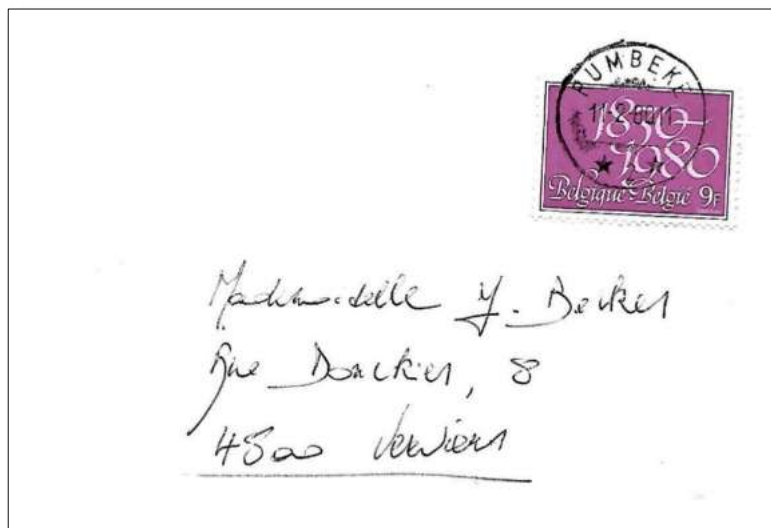 RUMBEKE
11-2-80 11
1830-
1980
Belgique - België 9F
Mademoiselle Y. Becker
Rue Donckier, 8
4800 Verviers